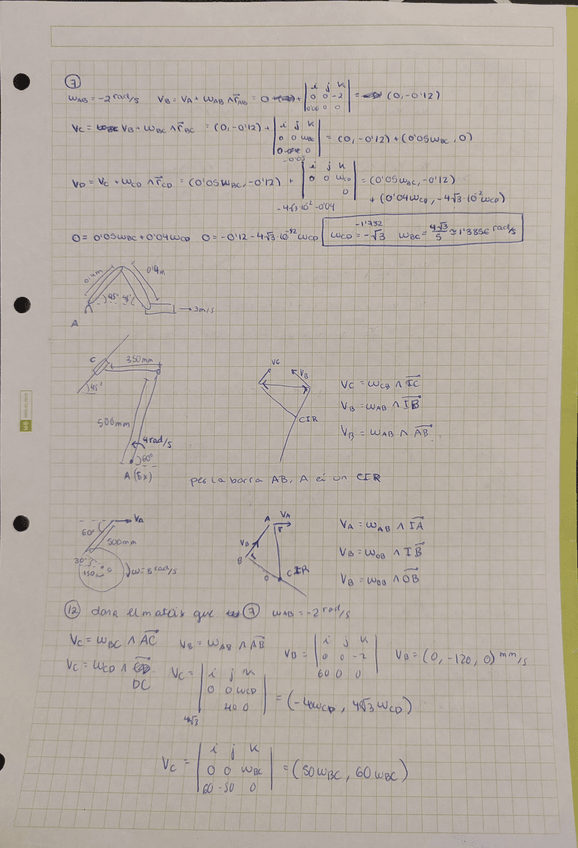 7
ω_AB = -2 rad/s   V_B = V_A + ω_AB ∧ r_AB = 0 + | i j k ; 0 0 -2 ; 0'06 0 0 | = (0, -0'12)
V_C = V_B + ω_BC ∧ r_BC = (0, -0'12) + | i j k ; 0 0 ω_BC ; -0'05 0 | = (0, -0'12) + (0'05ω_BC, 0)
V_D = V_C + ω_CD ∧ r_CD = (0'05ω_BC, -0'12) + | i j k ; 0 0 ω_CD ; -4√3·10^-2 -0'04 0 | = (0'05ω_BC, -0'12)
+ (0'04ω_CD, -4√3·10^-2 ω_CD)
0 = 0'05ω_BC + 0'04ω_CD   0 = -0'12 - 4√3·10^-2 ω_CD   ω_CD = -√3   -1'732   ω_BC = 4√3/5 ≃ 1'3856 rad/s
0'4m
0'4m
45°
45°
3m/s
A
C
350mm
45°
500mm
4 rad/s
60°
A (fix)
V_C
V_B
CIR
V_C = ω_CB ∧ IC
V_B = ω_AB ∧ IB
V_B = ω_AB ∧ AB
per la barra AB, A és un CIR
60°
V_A
500mm
30°
150mm
ω = 8 rad/s
A
V_A
V_B
B
O
CIR
V_A = ω_AB ∧ IA
V_B = ω_OB ∧ IB
V_B = ω_OB ∧ OB
12 dona el mateix que 7   ω_AB = -2 rad/s
V_C = ω_BC ∧ AC   V_B = ω_AB ∧ AB   V_B = | i j k ; 0 0 -2 ; 60 0 0 |   V_B = (0, -120, 0) mm/s
V_C = ω_CD ∧ DC   V_C = | i j k ; 0 0 ω_CD ; 4√3 40 0 | = (-40ω_CD, 4√3 ω_CD)
V_C = | i j k ; 0 0 ω_BC ; 60 -50 0 | = (50ω_BC, 60ω_BC)